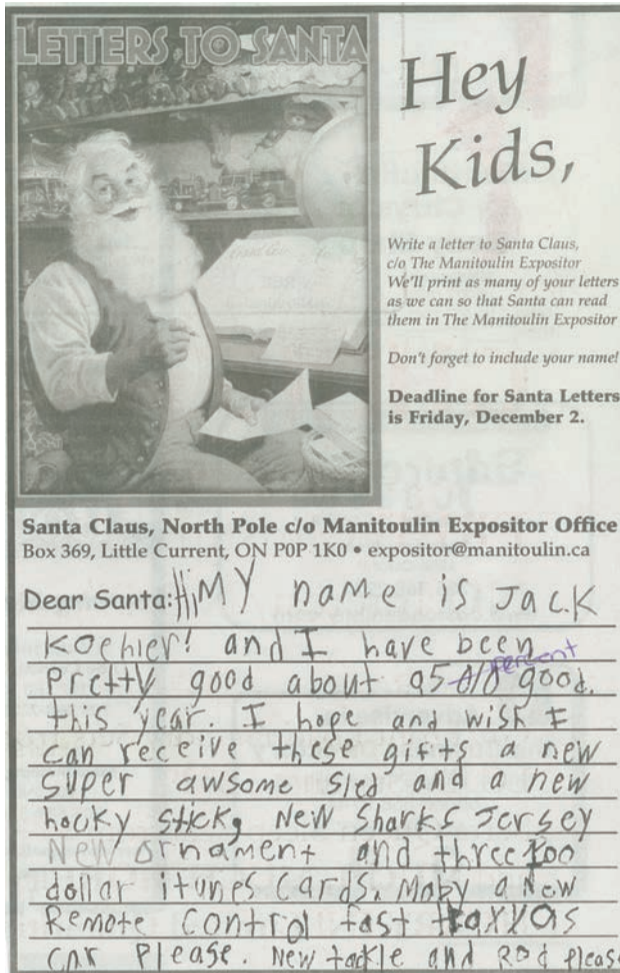 LETTERS TO SANTA
Hey
Kids,
Write a letter to Santa Claus,
c/o The Manitoulin Expositor
We'll print as many of your letters
as we can so that Santa can read
them in The Manitoulin Expositor
Don't forget to include your name!
Deadline for Santa Letters
is Friday, December 2.
Santa Claus, North Pole c/o Manitoulin Expositor Office
Box 369, Little Current, ON P0P 1K0 • expositor@manitoulin.ca
Dear Santa: Hi MY name is JACK
Koehler! and I have been
percent
Pretty good about 95 good.
this year. I hope and wish I
can receive these gifts a new
super awsome sled and a new
hocky stick, New Sharks Jersey
New ornament and three 100
dollar itunes cards. Maby a New
Remote control fast traxxas
car Please. New tackle and Rod please